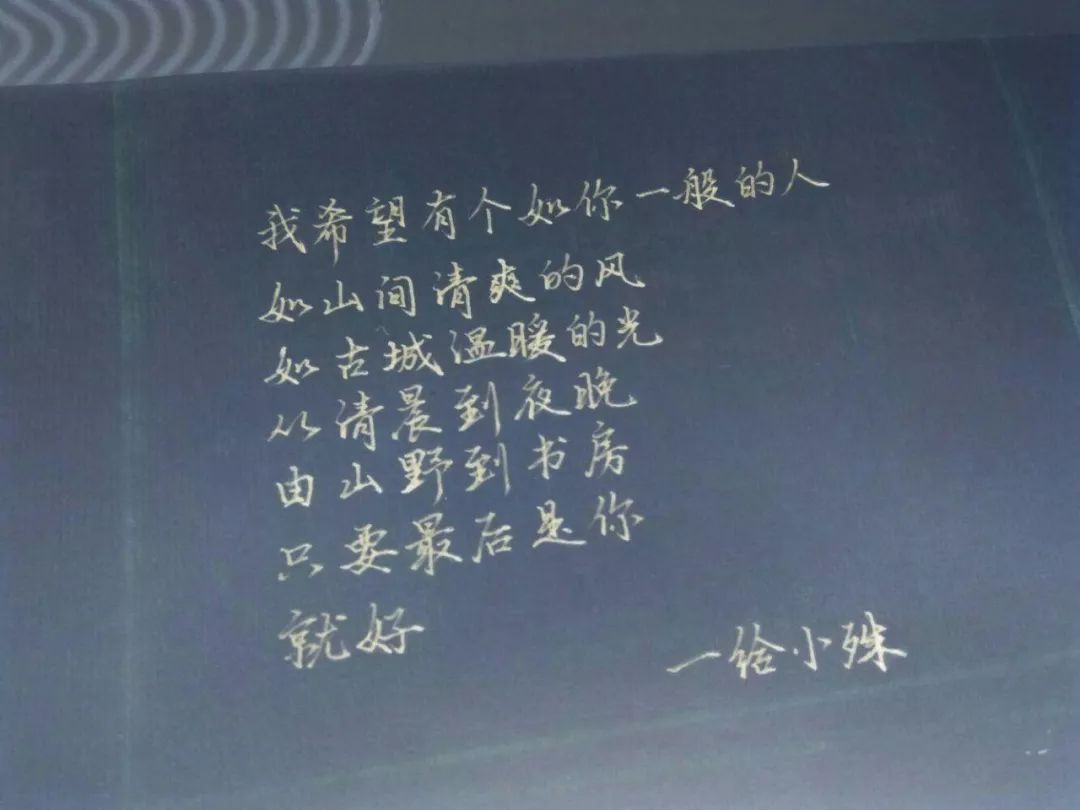 我希望有个如你一般的人
如山间清爽的风
如古城温暖的光
从清晨到夜晚
由山野到书房
只要最后是你
就好
一给小殊